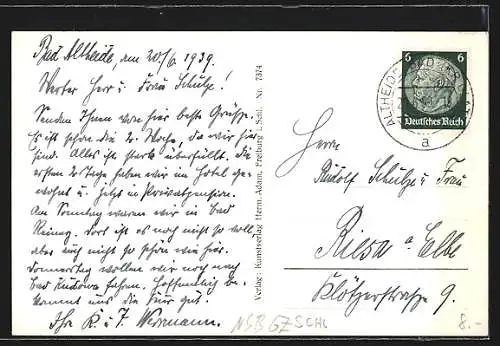 Bad Altheide, am 20./6. 1939.
Werter Herr u. Frau Schulze!
Senden Ihnen von hier beste Grüße.
Es ist schon die 2. Woche, da wir hier
sind. Alles ist stark überfüllt. Die
ersten 2 Tage haben wir im Hotel ge-
wohnt u. jetzt in Privatpension.
Am Sonntag waren wir in Bad
Reinerz. Dort ist es noch nicht so voll
aber auch nicht so schön wie hier.
Donnerstag wollen wir noch nach
Bad Kudowa fahren. Hoffentlich be-
kommt uns die Kur gut.
Ihr K. u. F. Wermann.
Verlag: Kunstverlag Herm. Adam, Freiburg i. Schl. Nr. 7374
ALTHEIDE BAD
a
6 6
Deutsches Reich
Herrn
Rudolf Schulze u Frau
Riesa a Elbe
Klötzerstraße 9.
8.-